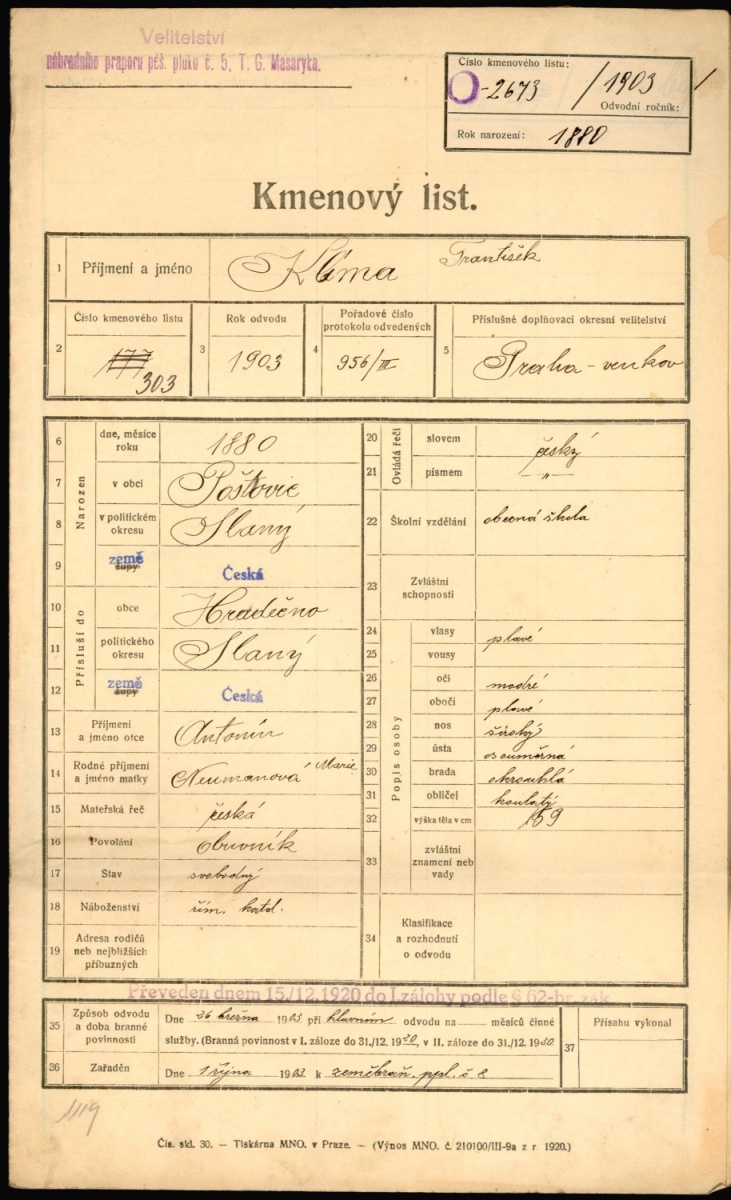 Velitelství
náhradního praporu pěš. pluku č. 5, T. G. Masaryka.
Číslo kmenového listu:
O-2673 / 1903
Odvodní ročník:
Rok narození: 1880
Kmenový list.
1 Příjmení a jméno Klíma František
2 Číslo kmenového listu 177 303
3 Rok odvodu 1903
4 Pořadové číslo protokolu odvedených 956/III
5 Příslušné doplňovací okresní velitelství Praha - venkov
Narozen
6 dne, měsíce roku 1880
7 v obci Poštovic
8 v politickém okresu Slaný
9 země župy Česká
Přísluší do
10 obce Hradečno
11 politického okresu Slaný
12 země župy Česká
13 Příjmení a jméno otce Antonín
14 Rodné příjmení a jméno matky Neumanová Marie
15 Mateřská řeč česká
16 Povolání obuvník
17 Stav svobodný
18 Náboženství řím. katol.
19 Adresa rodičů neb nejbližších příbuzných
Ovládá řeči
20 slovem český
21 písmem -„-
22 Školní vzdělání obecná škola
23 Zvláštní schopnosti
Popis osoby
24 vlasy plavé
25 vousy
26 oči modré
27 obočí plavé
28 nos široký
29 ústa souměrná
30 brada okrouhlá
31 obličej koulatý
32 výška těla v cm 159
33 zvláštní znamení neb vady
34 Klasifikace a rozhodnutí o odvodu
Převeden dnem 15./12. 1920 do I. zálohy podle § 62-br. zák.
35 Způsob odvodu a doba branné povinnosti
Dne 26 března 1903 při hlavním odvodu na měsíců činné
služby. (Branná povinnost v I. záloze do 31./12. 1920, v II. záloze do 31./12. 1930.
36 Zařaděn Dne 1 října 1903 k zeměbraň. ppl. č. 8
37 Přísahu vykonal
1119
Čís. skl. 30. — Tiskárna MNO. v Praze. — (Výnos MNO. č. 210100/III-9a z r. 1920.)